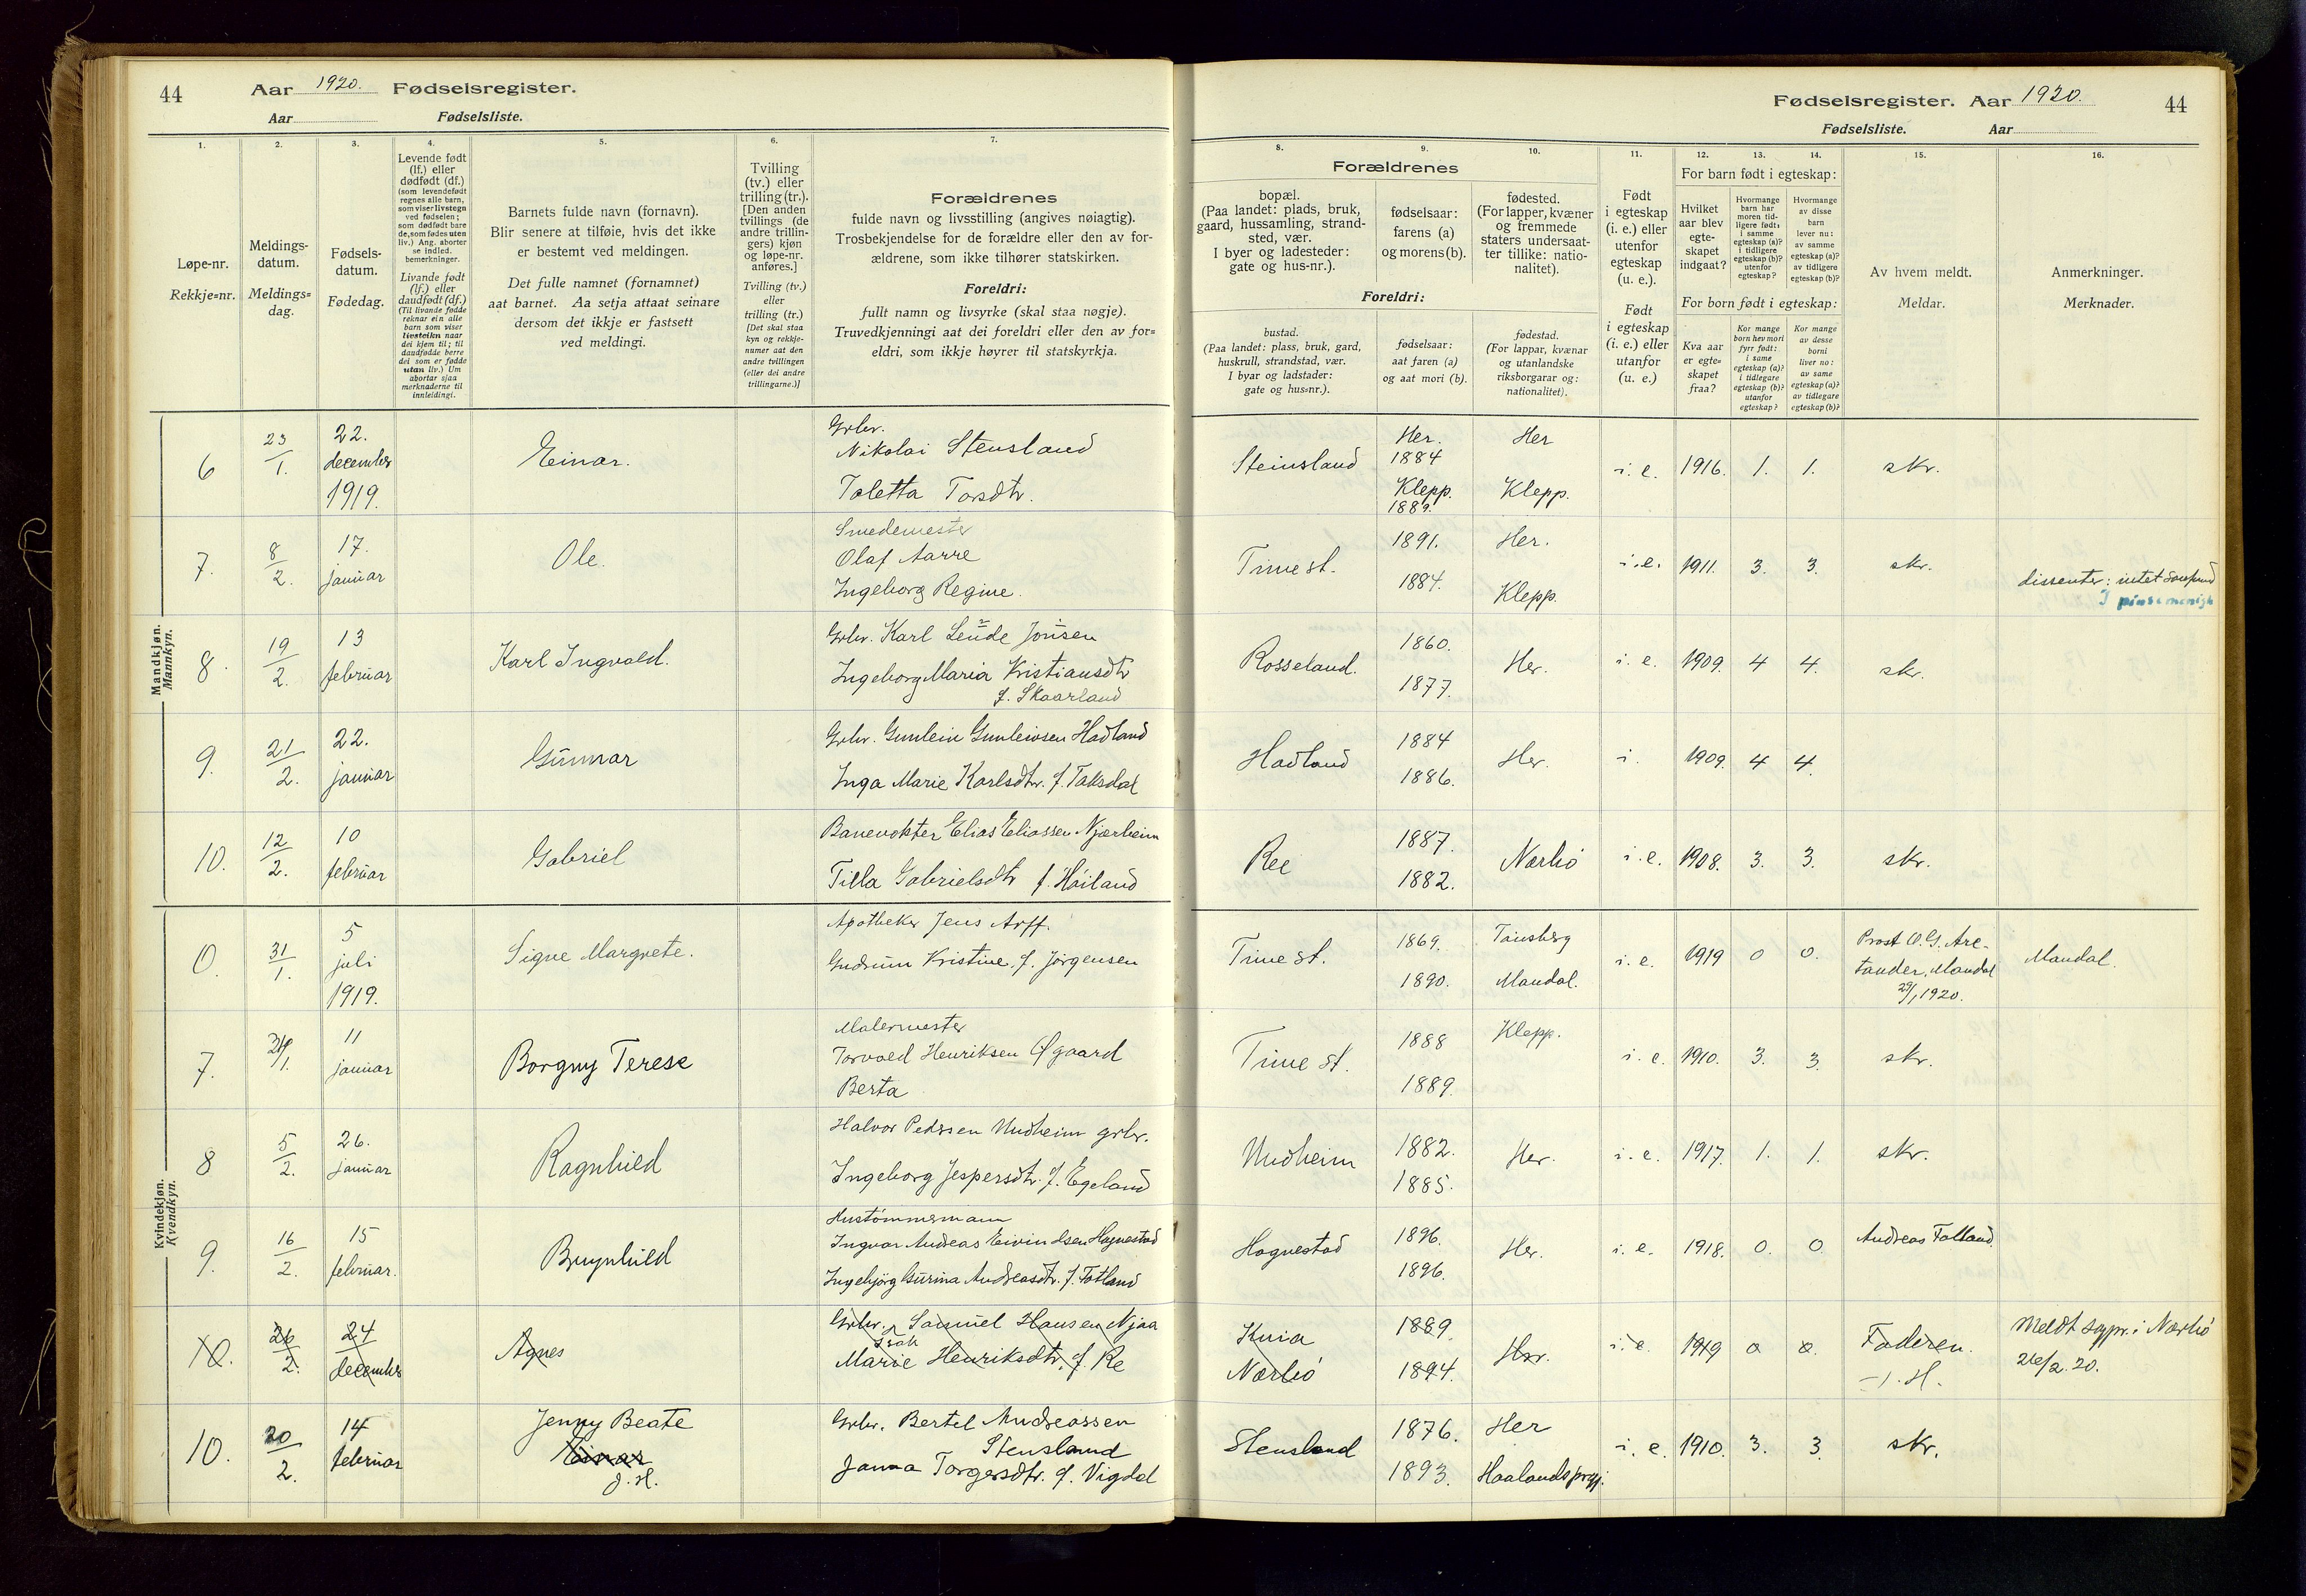 44
Aar 1920. Fødselsregister.
Aar Fødselsliste.
Fødselsregister. Aar 1920.
44
Fødselsliste. Aar
1.
2.
3.
4.
5.
6.
7.
Løpe-nr.
Rekkje=nr.
Meldings-
datum.
Meldings=
dag.
Fødsels-
datum.
Fødedag.
Levende født
(lf.) eller
dødfødt (df.)
(som levendefødt
regnes alle barn,
som viser livstegn
ved fødselen;
som dødfødt bare
de, som fødes uten
liv.) Ang. aborter
se indled.
bemerkninger.
Livande født
(lf.) eller
daudfødt (df.)
(Til livande fødde
reknar ein alle
barn som viser
livsteikn naar
dei kjem til; til
daudfødde berre
dei som er fødde
utan liv.) Um
abortar sjaa
merknaderne til
innleidingi.
Barnets fulde navn (fornavn).
Blir senere at tilføie, hvis det ikke
er bestemt ved meldingen.
Det fulle namnet (fornamnet)
aat barnet. Aa setja attaat seinare
dersom det ikkje er fastsett
ved meldingi.
Tvilling
(tv.) eller
trilling (tr.).
[Den anden
tvillings (de
andre trillin-
gers) kjøn
og løpe-nr.
anføres.]
Tvilling (tv.)
eller
trilling (tr.)
[Det skal staa
kyn og rekkje-
numer aat den
andre tvillingen
(eller dei andre
trillingarne.)]
Forældrenes
fulde navn og livsstilling (angives nøiagtig).
Trosbekjendelse for de forældre eller den av for-
ældrene, som ikke tilhører statskirken.
Foreldri:
fullt namn og livsyrke (skal staa nøgje).
Truvedkjenningi aat dei foreldri eller den av for=
eldri, som ikkje høyrer til statskyrkja.
8.
9.
10.
11.
12.
13.
14.
15.
16.
Forældrenes
bopæl.
(Paa landet: plads, bruk,
gaard, hussamling, strand-
sted, vær.
I byer og ladesteder:
gate og hus-nr.).
fødselsaar:
farens (a)
og morens (b).
fødested.
(For lapper, kvæner
og fremmede
staters undersaat-
ter tillike: natio-
nalitet).
Foreldri:
bustad.
(Paa landet: plass, bruk, gard,
huskrull, strandstad, vær.
I byar og ladstader:
gate og hus=nr.).
fødselsaar:
aat faren (a)
og aat mori (b).
fødestad.
(For lappar, kvænar
og utanlandske
riksborgarar og:
nationalitet).
Født
i egteskap
(i. e.) eller
utenfor
egteskap
(u. e.).
Født
i egteskap
(i. e.) eller
utanfor
(u. e.)
For barn født i egteskap:
Hvilket
aar blev
egte-
skapet
indgaat?
Hvormange
barn har
moren tid-
ligere født:
i samme
egteskap (a)?
i tidligere
egteskap (b)?
utenfor
egteskap?
Hvormange
av disse
barn
lever nu:
av samme
egteskap (a)?
av tidligere
egteskap (b)?
For born født i egteskap:
Kva aar
er egte=
skapet
fraa?
Kor mange
born hev mori
fyrr født:
i same
egteskap (a)?
i tidlegare
egteskap (b)?
utanfor
egteskap?
Kor mange
av desse
borni
liver no:
av same
egteskap (a)?
av tidlegare
egteskap (b)?
Av hvem meldt.
Meldar.
Anmerkninger.
Merknader.
Mandkjøn.
Mannkyn.
6 23/1. 22. december 1919. Einar. Grbr. Nikolai Stensland
Taletta Torsdtr.
Steinsland Her. 1884 Klepp. 1889. Her Klepp. i. e. 1916. 1. 1. skr.
7. 8/2. 17. januar Ole. Smedemester
Olaf Aarre
Ingeborg Regine.
Time st. 1891. 1884. Her. Klepp. i.e. 1911. 3. 3. skr. dissenter: intet samfund
I pinsemenigh
8. 19/2. 13 februar Karl Ingvald. Grbr. Karl Lende Jonsen
Ingeborg Maria Kristiansdtr
f. Skaarland
Rosseland. 1860. 1877. Her. i. e. 1909. 4 4. skr.
9. 21/2. 22. januar Gunnar Grbr. Gunlein Gunleivsen Hadland
Inga Marie Karlsdtr. f. Taksdal
Hadland 1884 1886. Her. i. 1909. 4 4.
10. 12/2. 10 februar Gabriel Banevokter Elias Eliassen Njærheim
Tilla Gabrielsdtr f. Høiland
Ree 1887. 1882. Nærbö i.e. 1908. 3. 3. skr.
Kvindekjøn.
Kvendkyn.
0. 31/1. 5 juli 1919. Signe Margrete. Apotheker Jens Arff.
Gudrun Kristine f. Jörgensen
Time st. 1869. 1890. Tønsberg Mandal. i. e. 1919 0 0. Prost O. G. Are-
tander, Mandal
29/1 1920.
Mandal.
7. 11 januar Borgny Terese Malermester
Torvald Henriksen Øgaard
Berta
Time st. 1888 1889. Klepp. i. e. 1910. 3. 3. skr.
8 5/2. 26. januar Ragnhild Halvor Pedersen Undheim grbr.
Ingeborg Jespersdtr. f. Egeland
Undheim 1882. 1885. Her. i. e. 1917. 1. 1. skr.
9. 16/2. 15 februar. Brynhild Hustømmermann
Ingvar Andreas Eivindsen Hognestad
Ingebjörg Gurina Andreasdtr. f. Fotland
Hognestad 1896. 1896. Her. i. e. 1918. 0. 0. Andreas Fotland.
10. 26/2. 24 december Agnes Grbr. Samuel Hansen Njaa
Marie Henriksdtr. f. Re
Kvia
Nærbö 1889. 1894. Her. i. e. 1919 0 0. Faderen.
J. H.
Meldt sogpr. i Nærbö
26/2. 20.
10. 20/2. 14 februar Jenny Beate
Einar
J. H.
Grbr. Bertel Andreassen
Stensland
Janna Torgersdtr. f. Vigdal
Stensland 1876. 1893. Her Haalandsprgj. i. e. 1910. 3. 3 skr.